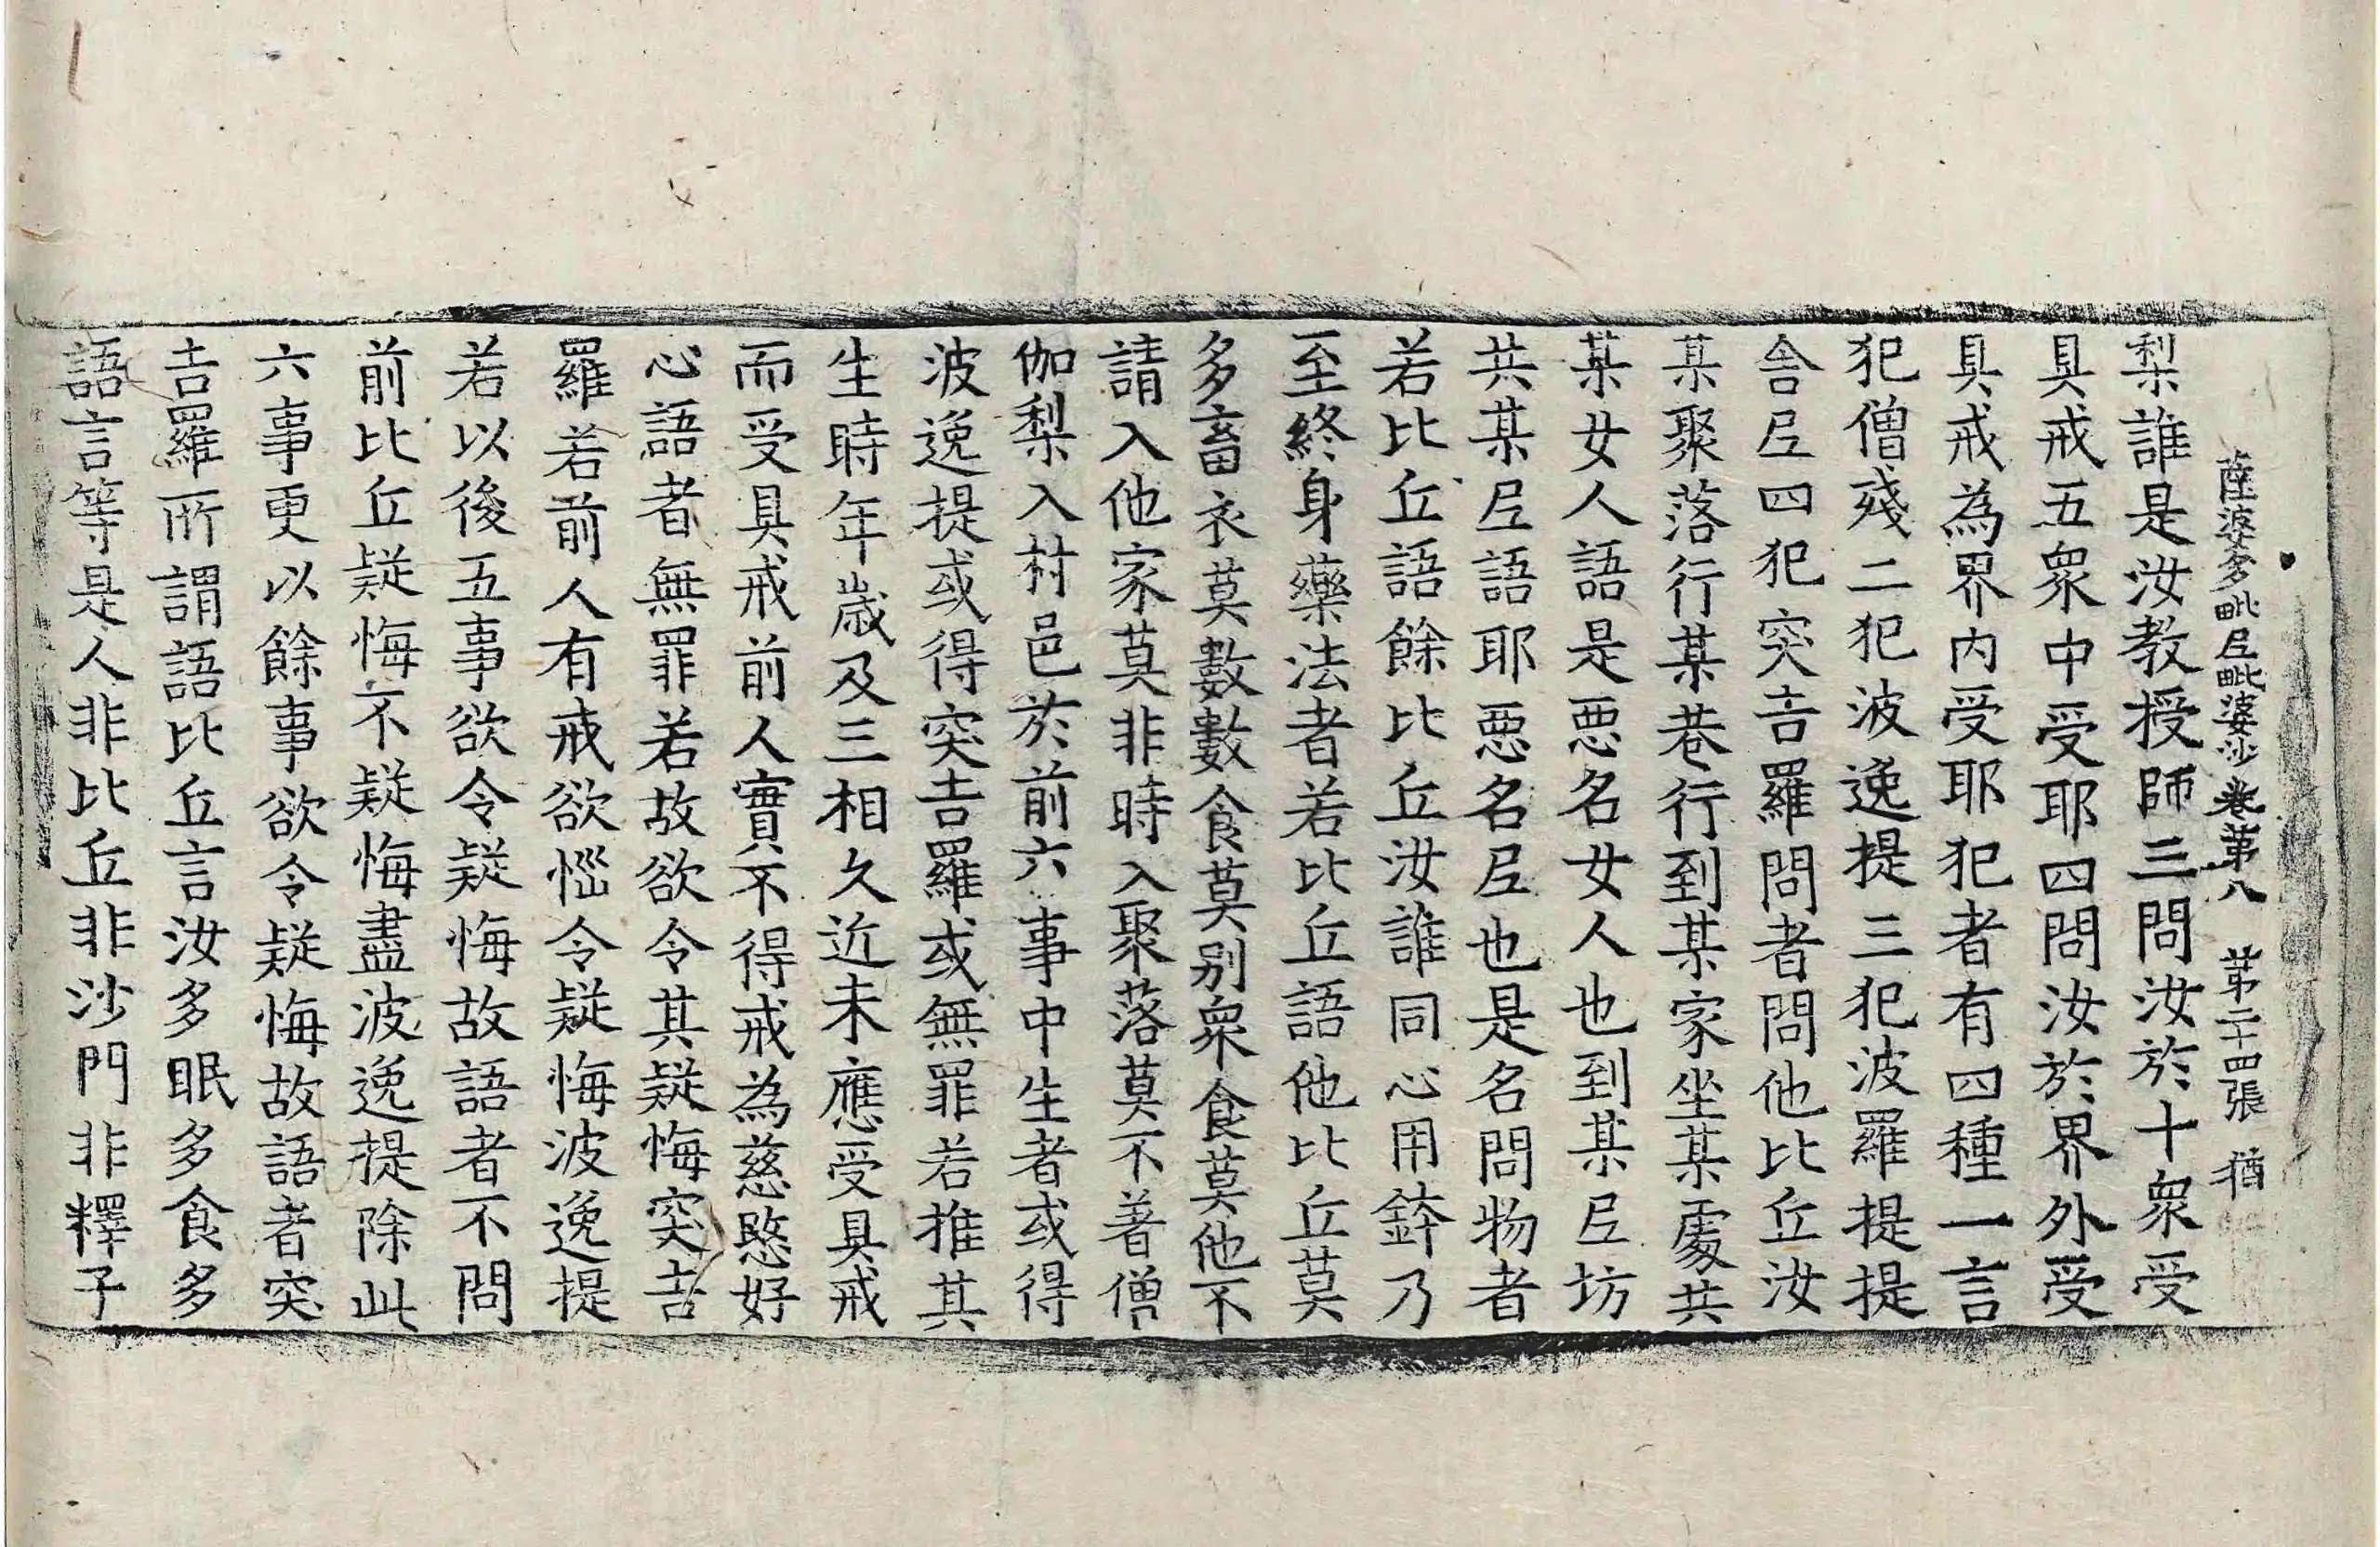 薩婆多毗尼毗婆沙卷第八 第二十四張 猶
梨誰是汝教授師三問汝於十衆受
具戒五衆中受耶四問汝於界外受
具戒為界內受耶犯者有四種一言
犯僧殘二犯波逸提三犯波羅提提
舍尼四犯突吉羅問者問他比丘汝
某聚落行某巷行到某家坐某處共
某女人語是惡名女人也到某尼坊
共某尼語耶惡名尼也是名問物者
若比丘語餘比丘汝誰同心用鉢乃
至終身藥法者若比丘語他比丘莫
多畜衣莫數數食莫別衆食莫他不
請入他家莫非時入聚落莫不著僧
伽梨入村邑於前六事中生者或得
波逸提或得突吉羅或無罪若推其
生時年歲及三相久近未應受具戒
而受具戒前人實不得戒為慈愍好
心語者無罪若故欲令其疑悔突吉
羅若前人有戒欲惱令疑悔波逸提
若以後五事欲令疑悔故語者不問
前比丘疑悔不疑悔盡波逸提除此
六事更以餘事欲令疑悔故語者突
吉羅所謂語比丘言汝多眠多食多
語言等是人非比丘非沙門非釋子